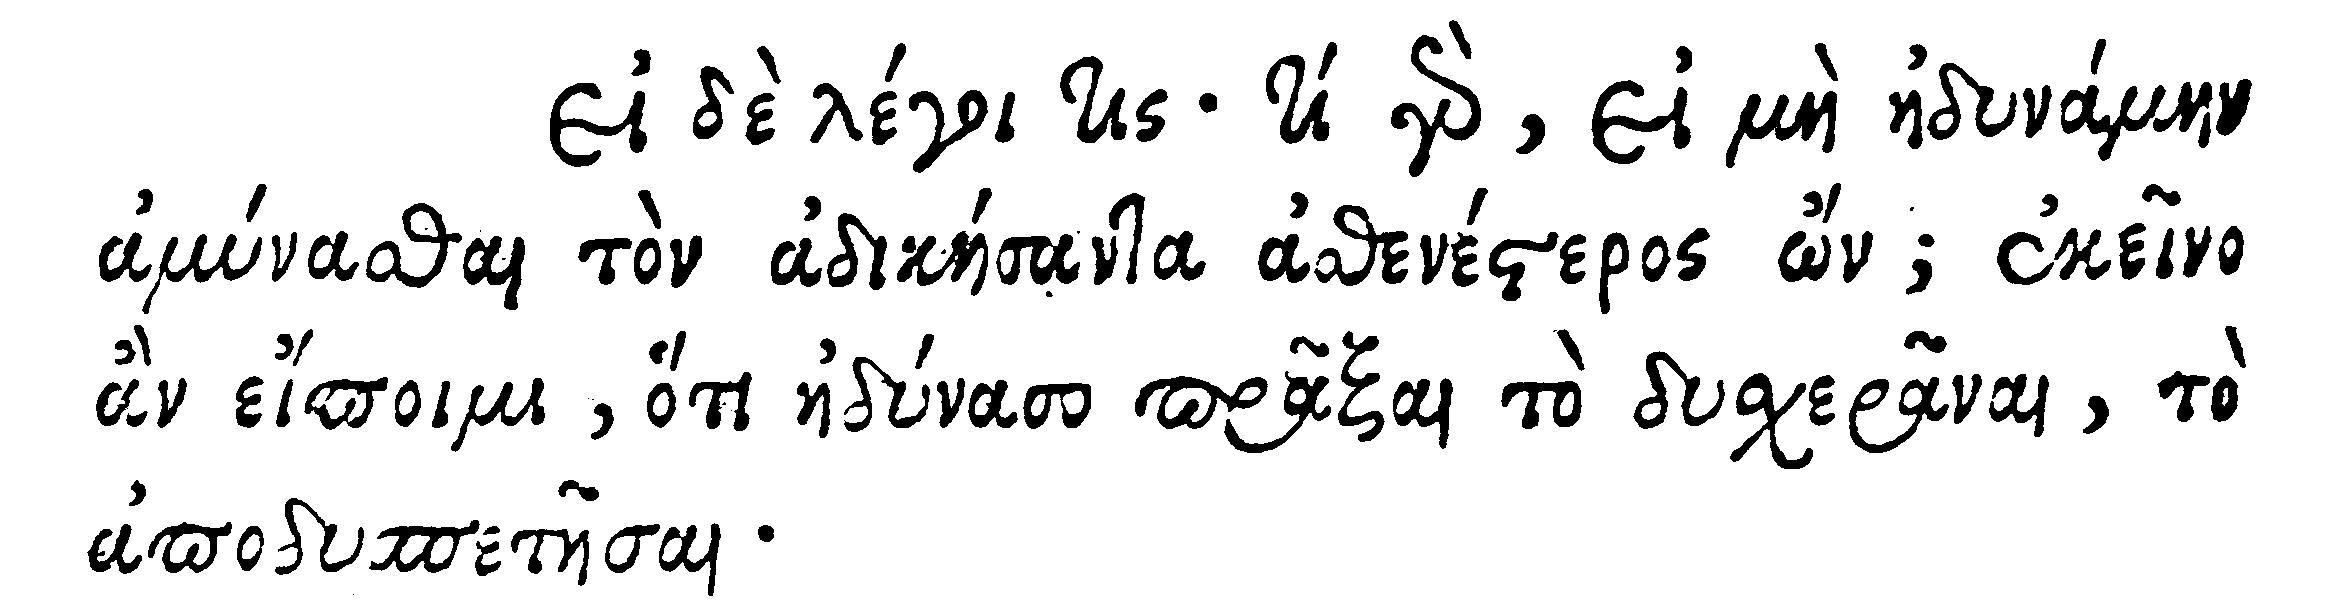 Εἰ δὲ λέγοι τις· τί γὰρ, εἰ μὴ ἠδυνάμην
ἀμύνασθαι τὸν ἀδικήσαντα ἀσθενέστερος ὤν; ἐκεῖνο
ἂν εἴποιμι, ὅτι ἠδύνασο πρᾶξαι τὸ δυσχερᾶναι, τὸ
ἀποδυσπετῆσαι·